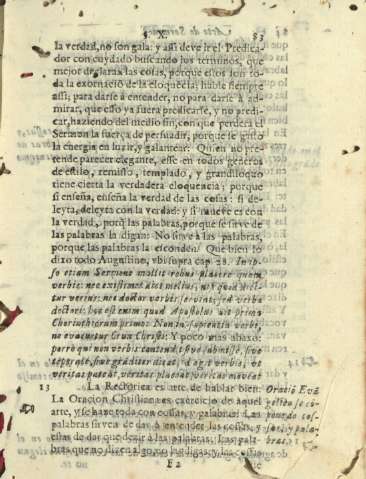 §. X. 83
la verdad, no son gala: y assi deve ir el Predica-
dor con cuydado buscando los terminos, que
mejor declaran las cosas, porque estos son to-
da la exornació de la eloquécia; hable siempre
assi, para darse à entender, no para darse à ad-
mirar, que esso ya fuera predicarse, y no predi-
car, haziendo del medio fin, con que perderà el
Sermon la fuerça de persuadir, porque se gastò
la energia en luzir, y galantear. Quien no pre-
tende parecer elegante, esse en todos generos
de estilo, remisso, templado, y grandiloquo
tiene cierta la verdadera eloquencia; porque
si enseña, enseña la verdad de las cosas: si de-
leyta, deleyta con la verdad: y si mueve es con
la verdad, porq̃ las palabras, porque se sirve de
las palabras la digan: No sirve à las palabras,
porque las palabras la esconden. Que bien lo
dixo todo Augustino, vbi supra cap. 28. In ip-
so etiam Sermone mallit rebus placere quam
verbis: nec existimet dici melius, nisi quod dici-
tur verius: nec doctor verbis serviat, sed verba
doctori: hoc est enim quod Apostolus ait prima
Chorinthiorum primo: Non in sapientia verbi,
ne evacuetur Crux Christi: Y poco mas abaxo:
porro qui non verbis contendit, sive submisse, sive
temperate, sive granditer dicat, id agit verbis, ut
veritas pateat, veritas placeat, veritas moveat
13 La Rectorica es arte de hablar bien.
La Oracion Christiana es exercicio de aquel
arte, y se haze toda con cosas, y palabras. Las
palabras sirven de dar à entender las cosas, y
essas de dar que dezir à las palabras. Las pala-
bras que no dizen algo no
Oració Evã
gelica se cõ-
pone de cos-
as, y pala-
bras.
F2